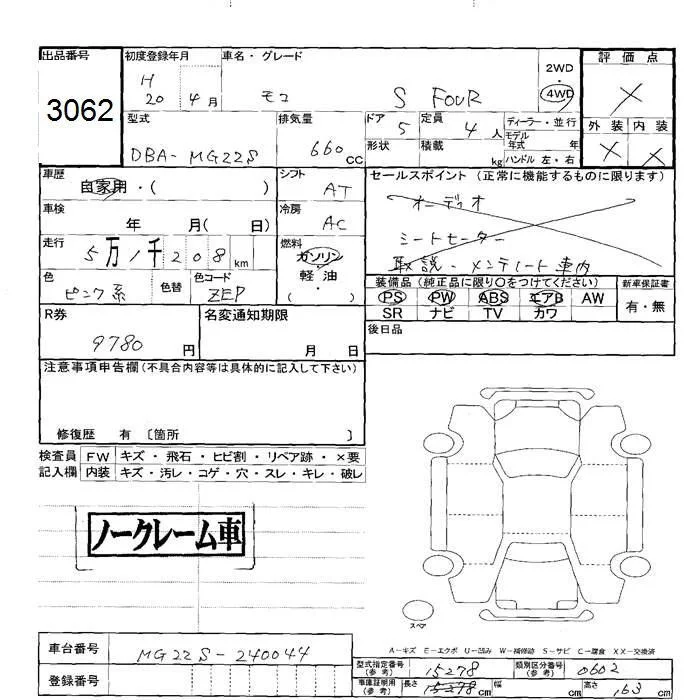 出品番号
3062
初度登録年月
H 20 4月
車名・グレード
モコ S FOUR
2WD
・
4WD
評価点
×
外装 内装
× ×
型式
DBA-MG22S
排気量
660 CC
ドア
5
定員
4 人
形状
積載
kg
ディーラー・並行
モデル年式 年
ハンドル 左・右
車歴
自家用・( )
シフト
AT
車検
年 月( 日)
冷房
AC
走行
5万1千208km
燃料
ガソリン
・
軽油
・
( )
色
ピンク系
色替
色コード
ZEP
セールスポイント(正常に機能するものに限ります)
オーディオ
シートヒーター
取説・メンテノート車内
装備品(純正品に限り○をつけてください)
PS PW ABS エアB AW
SR ナビ TV カワ
新車保証書
有・無
後日品
R券
9780円
名変通知期限
月 日
注意事項申告欄(不具合内容等は具体的に記入して下さい)
修復歴 有 〔箇所 〕
検査員記入欄
FW キズ・飛石・ヒビ割・リペア跡・×要
内装 キズ・汚レ・コゲ・穴・スレ・キレ・破レ
ノークレーム車
スペア
A-キズ E-エクボ U-凹み W-補修跡 S-サビ C-腐食 XX-交換済
車台番号
MG22S-240044
登録番号
型式指定番号(参考)
15278
類別区分番号(参考)
0602
車庫証明用(参考)
長さ 15278cm
幅 cm
高さ 163cm